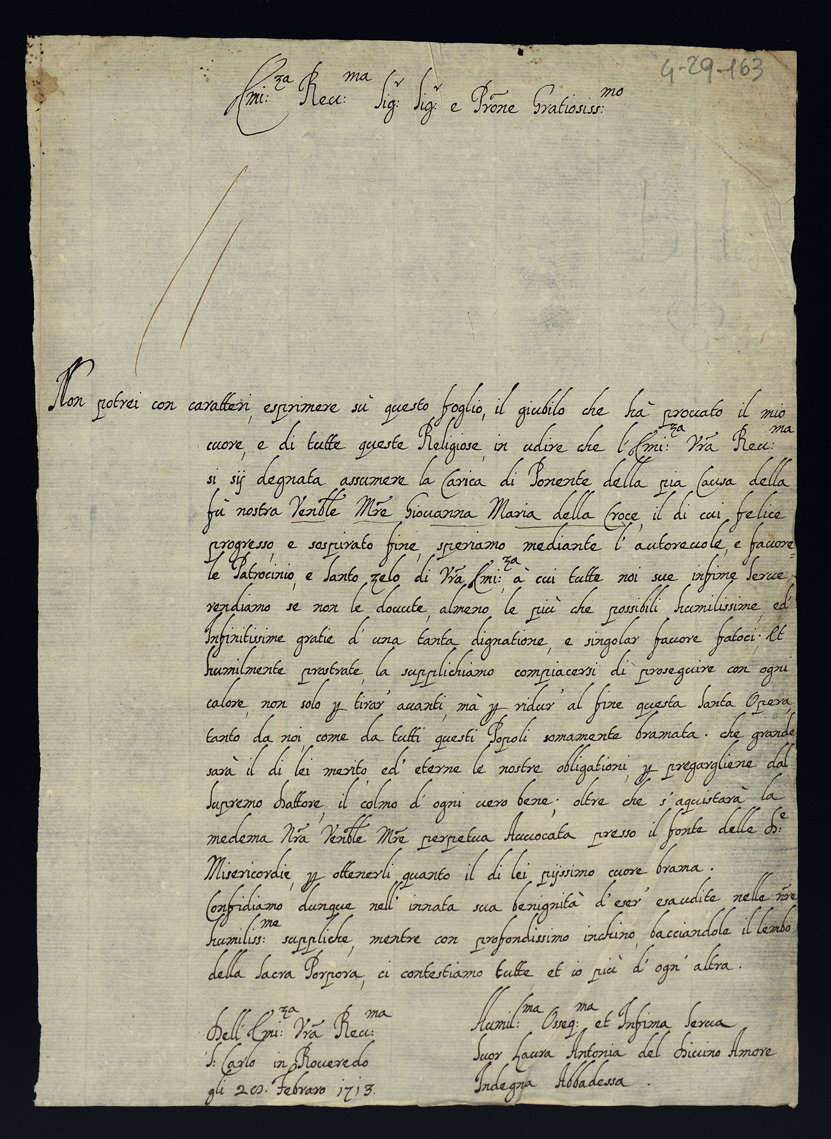 4-29-163
Emi:za Reu:ma Sig:r Sig:r e Prõne Gratiosiss:mo
Non potrei con caratteri, esprimere sù questo foglio, il giubilo che hà prouato il mio
cuore, e di tutte queste Religiose, in udire che l'Emi:za Vrã Reu:ma
si sij degnata assumere la Carica di Ponente della pia Causa della
fù nostra Venble Mre Giouanna Maria della Croce, il di cui felice
progresso, e sospirato fine, speriamo mediante l'autoreuole, e fauore=
le Patrocinio, e Santo zelo di Vrã Emi:za à cui tutte noi sue infime serue,
rendiamo se non le douute, almeno le più che possibili humilissime, ed'
Infinitissime gratie d'una tanta dignatione, e singolar fauore fatoci; Et
humilmente prostrate, la supplichiamo compiacersi di proseguire con ogni
calore, non solo p tirar' auanti, mà p ridur' al fine questa Santa Opera,
tanto da noi, come da tutti questi Popoli somamente bramata. che grande
sarà il di lei merito, ed' eterne le nostre obligationi, p pregargliene dal
Supremo Dattore, il colmo d'ogni uero bene; oltre che s'aquistarà la
medema Nrã Venble Mre perpetua Auuocata presso il fonte delle D:e
Misericordie, p ottenerli quanto il di lei pijssimo cuore brama.
Confidiamo dunque nell'innata sua benignità d'eser' esaudite nelle nre
humiliss:me suppliche, mentre con profondissimo inchino, bacciandole il lembo
della Sacra Porpora, ci contestiamo tutte et io più d'ogn'altra.
Dell'Emi:za Vrã Reu:ma
S: Carlo in Roueredo
gli Febraro 1713.
Humil:ma Osseq:ma et Infima Serua
Suor Laura Antonia del Diuino Amore
Indegna Abbadessa.